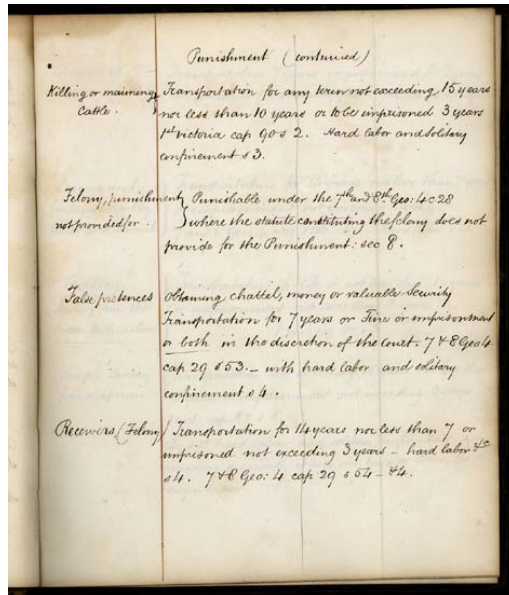 Punishment (continued)
Killing or maiming Cattle. } Transportation for any term not exceeding 15 years
nor less than 10 years or to be imprisoned 3 years
1st victoria cap 90 s 2. Hard labor and solitary
confinement s 3.
Felony, punishment not provided for. } Punishable under the 7th and 8th Geo: 4 c 28
where the statute constituting the felony does not
provide for the Punishment: sec 8.
False pretences Obtaining chattel, money or valuable Security
Transportation for 7 years or Fine or imprisonment
or both in the discretion of the Court. 7 & 8 Geo 4
cap 29 s 53. _ with hard labor and solitary
confinement s 4.
Receivers (Felony) Transportation for 14 years nor less than 7 or
imprisoned not exceeding 3 years - hard labor &c
s 4. 7 & 8 Geo: 4 cap 29 s 54 - &4.